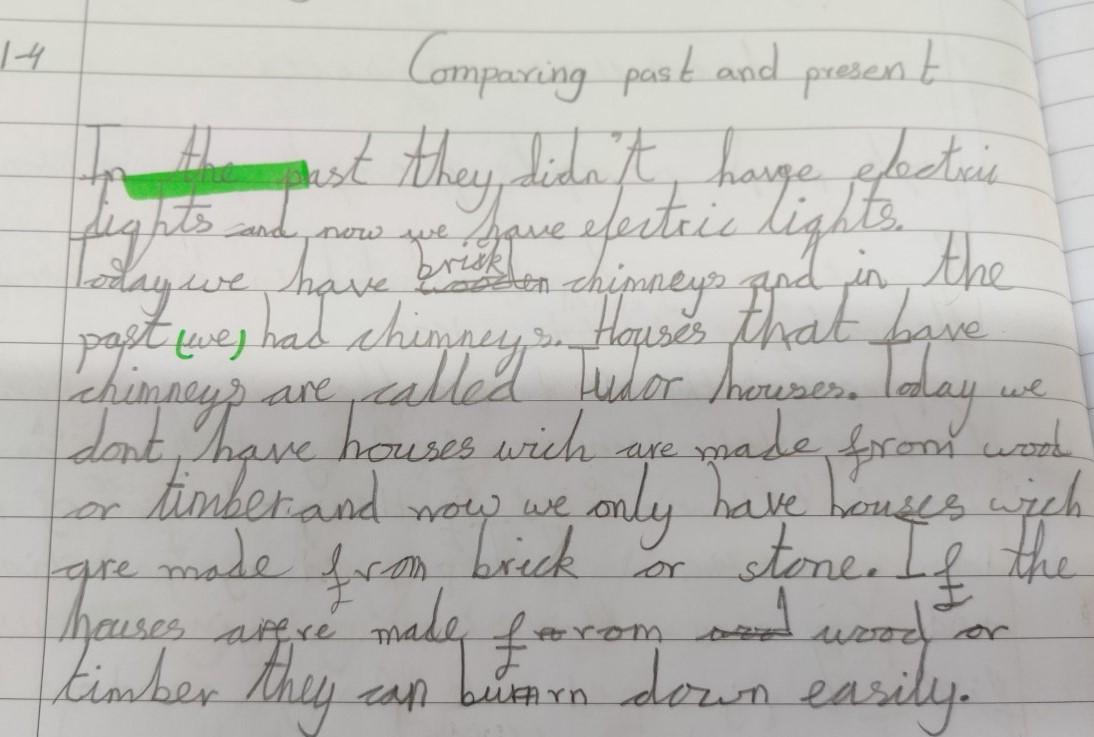 1-4
Comparing past and present
In the past they didn't have electric
lights and now we have electric lights.
Today we have brick wooden chimneys and in the
past (we) had chimneys. Houses that have
chimneys are called Tudor houses. Today we
dont have houses wich are made from wood
or timber and now we only have houses wich
are made from brick or stone. If the
houses are made from wood or
timber they can burn down easily.